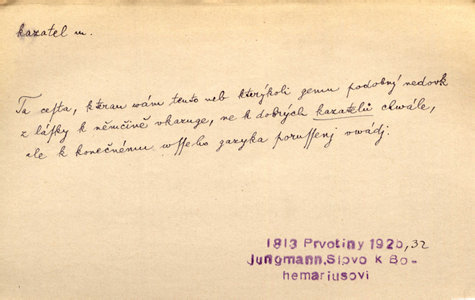 kazatel m.
Ta cesta, kterau wám tento neb kterýkoli gemu podobný nedouk
z lásky k němčině ukazuge, ne k dobrých kazatelů chwále,
ale k konečnému wsseho gazyka porussenj uwádj.
1813 Prvotiny 192b, 32
Jungmann, Slovo k Bo-
hemariusovi